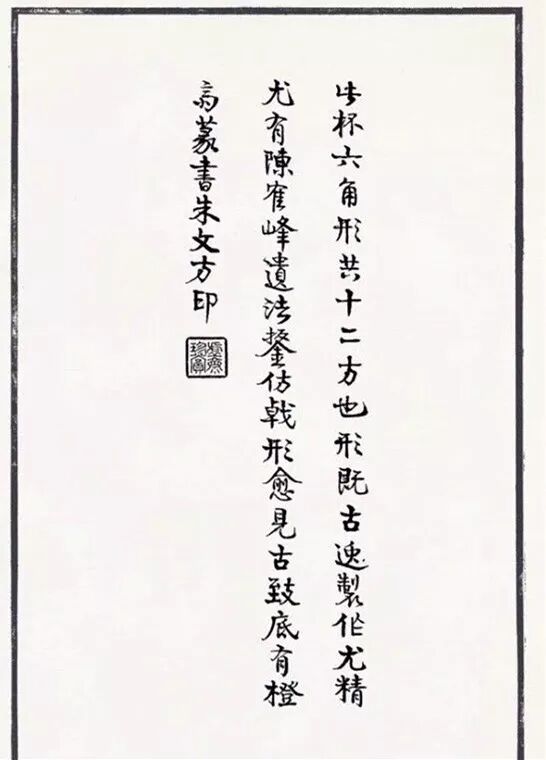 此杯六角形共十二方也形既古逸製作尤精
尤有陳隺峰遺法鋬仿戟形愈見古致底有橙
篆書朱文方印